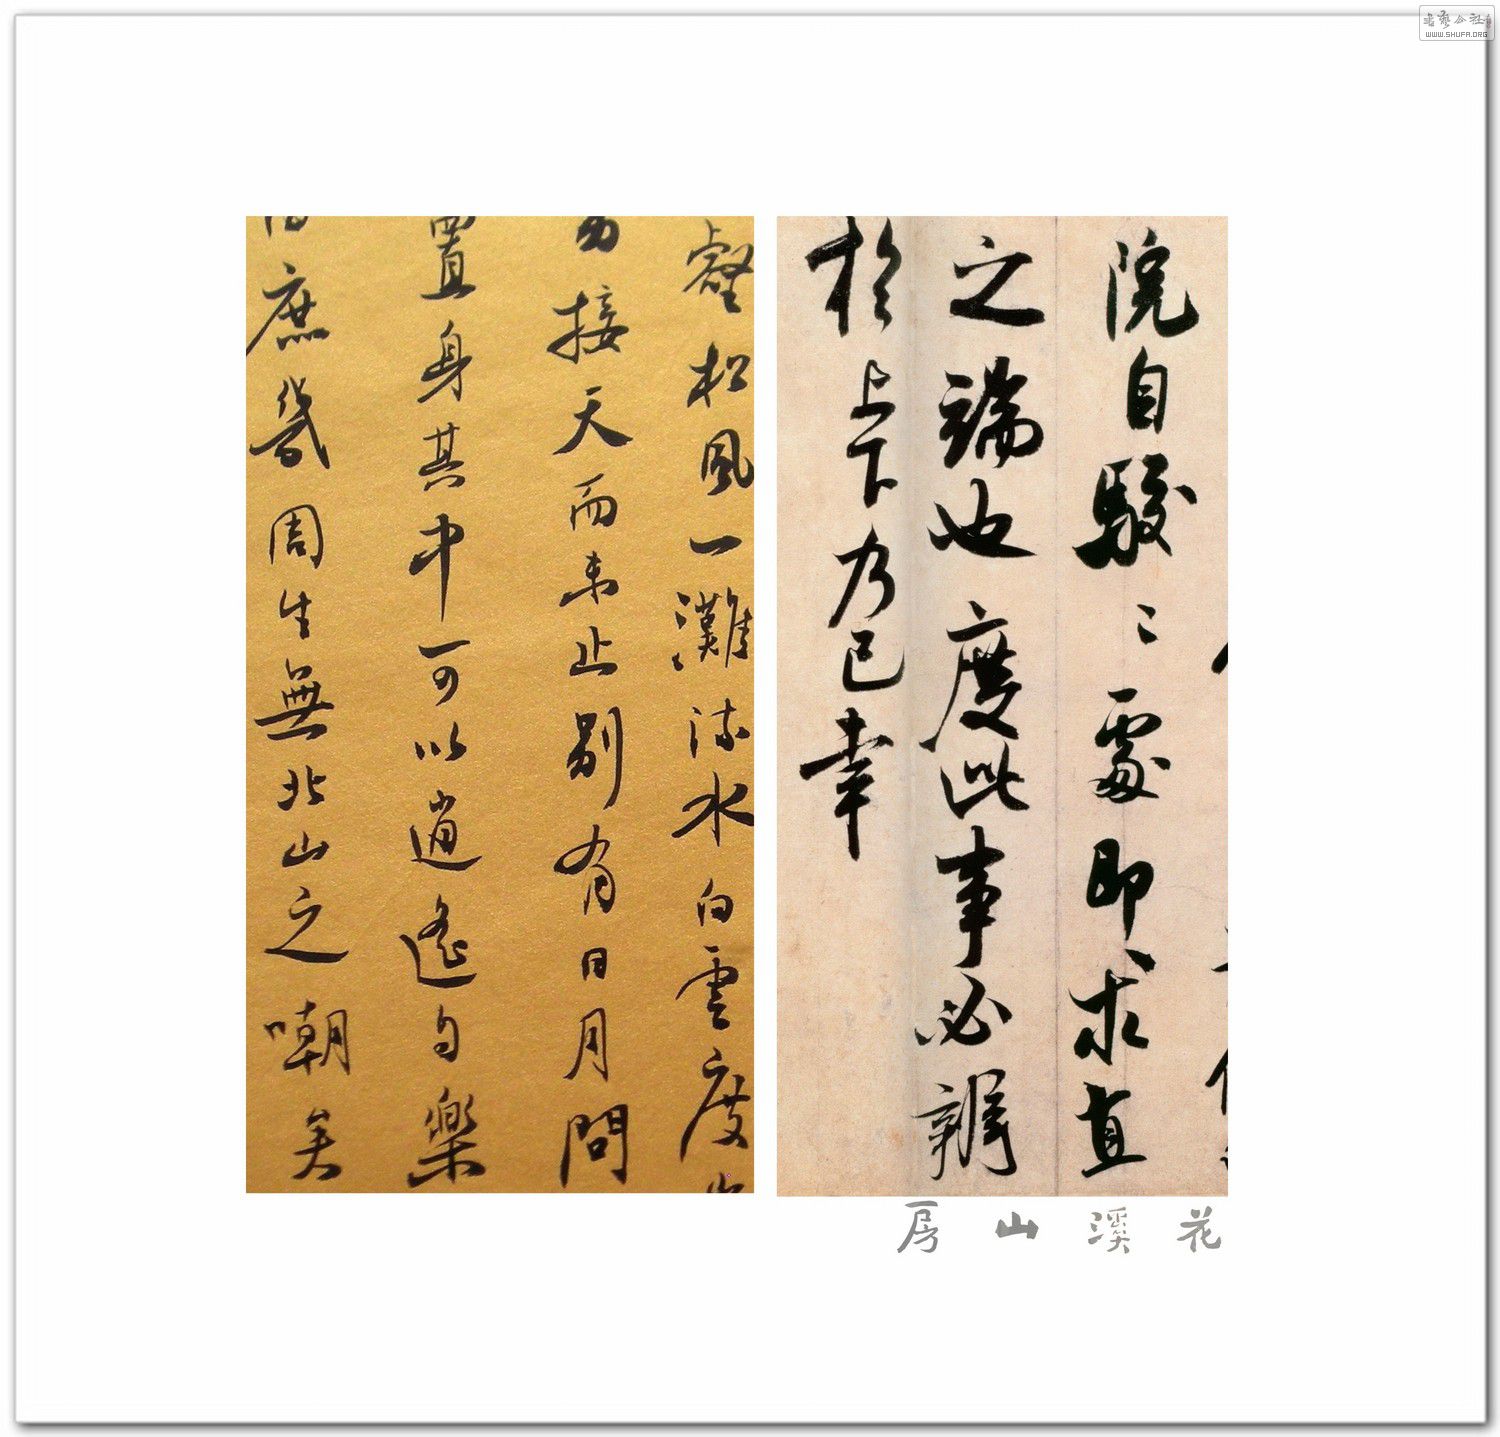 書藝公社
WWW.SHUFA.ORG
院自駿〻處即求直
之端也度此事必辨
於上下乃已幸
壑松風一灘流水白雲度
接天而未止別有日月問
置身其中可以逍遙自樂
庶幾周生無北山之嘲矣
花溪山房